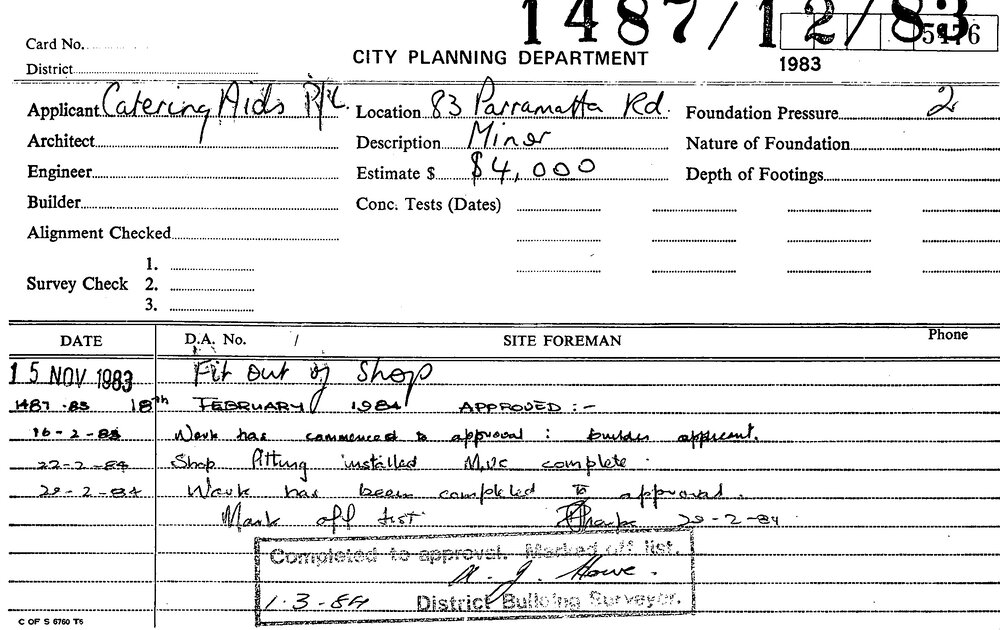 1487/12/83
5476
Card No.
CITY PLANNING DEPARTMENT
1983
District
Applicant Catering Aids P/L. Location 83 Parramatta Rd. Foundation Pressure 2
Architect Description Minor Nature of Foundation
Engineer Estimate $ $4,000 Depth of Footings
Builder Conc. Tests (Dates)
Alignment Checked
1.
Survey Check 2.
3.
DATE D.A. No. / SITE FOREMAN Phone
15 NOV 1983 Fit out of Shop
1487-83 18th FEBRUARY 1984 APPROVED :-
16-2-83 Work has commenced to approval : builder applicant.
22-2-84 Shop fitting installed complete.
29-2-84 Work has been completed to approval.
Mark off list 29-2-84
Completed to approval. Marked off list.
Howe.
1.3-84 District Building Surveyor.
C OF S 6760 T6